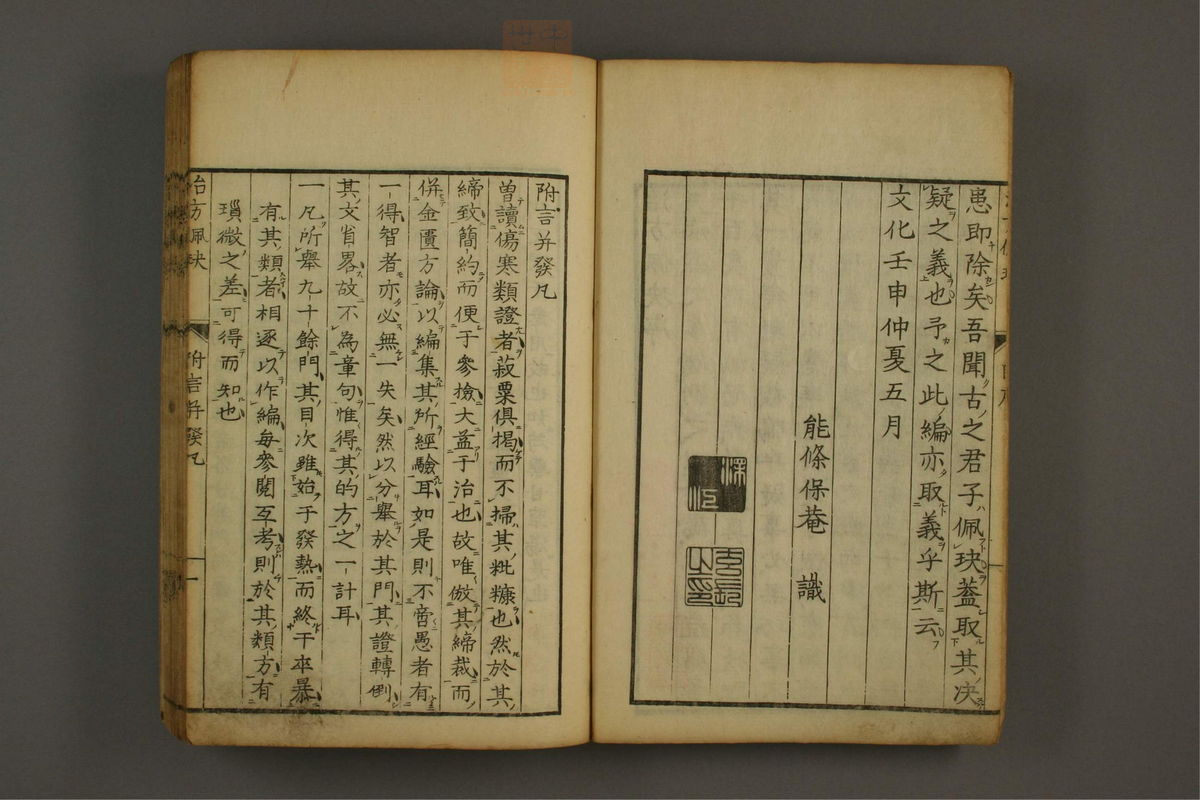 患即除矣吾聞古之君子佩玦葢取其决
疑之義也予之此編亦取義乎斯云
文化壬申仲夏五月
能條保菴 識
附言并發凡
曽讀傷寒類證者菽粟俱掲而不掃其粃糠也然於其
締致簡約而便于參撿大益于治也故唯倣其締裁而
併金匱方論以編集其所經驗耳如是則不啻愚者有
一得智者亦必無一失矣然以分舉於其門其證轉倒
其文省畧故不為章句惟得其的方之一計耳
一凡所舉九十餘門其目次雖始于發熱而終于卒暴
有其類者相逐以作編毎參閲互考則於其類方有
瑣微之差可得而知也
治方佩玦
附言并發凡
一